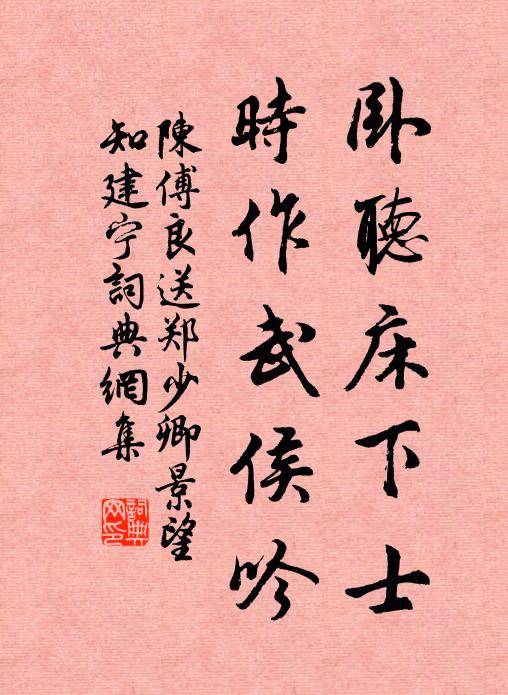 卧聽床下士
時作武侯吟
陳傅良送郑少卿景望
知建宁詞典網集
詞典网印